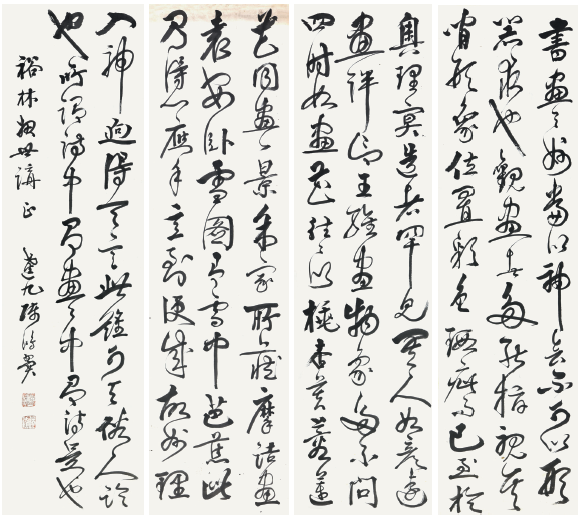 書畫之妙當以神會不可以形
器求也觀畫者多能指摘其
間形象位置彩色瑕疵而已至於
奧理冥造者罕見其人如彥遠
畫評言王維畫物象多不問
四時如畫花往往以桃杏芙蓉蓮
花同畫一景余家所藏摩詰畫
袁安臥雪圖有雪中芭蕉此
乃得心應手意到便成故妙理
入神迥得天意此難可與俗人論
也所謂詩中有畫畫中有詩是也
裕林親世講正